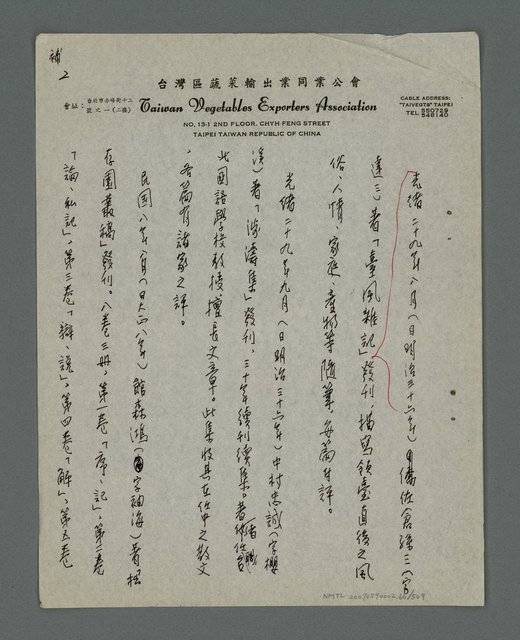 補
2
台灣區蔬菜輸出業同業公會
會址：台北市赤峰街十三號之一（二樓）
Taiwan Vegetables Exporters Association
CABLE ADDRESS:
"TAIVEGTS" TAIPEI
TEL 550729
548140
NO. 13-1 2ND FLOOR, CHYH FENG STREET
TAIPEI TAIWAN REPUBLIC OF CHINA
光緒二十九年八月（日明治三十六年）佐倉孫三（字
達三）者「臺風雜記」發刊，描寫領臺直後之風
俗、人情、家庭、產物等隨筆，每篇有評。
光緒二十九年九月（日明治三十六年）中村忠誠（字櫻
溪）者「涉濤集」發刊，三十年續刊續集。著者任臺
北國語學校教授，擅長文章，此集收其在任中之散文
，各篇有諸家之評。
民國八年八月（日大正八年）館森鴻（字袖海）著拙
存園叢稿」發刊。八卷三冊，第一卷「序、記」，第二卷
「論、私記」，第三卷「辯、說」，第四卷「解」，第五卷
NMTL 20070590002